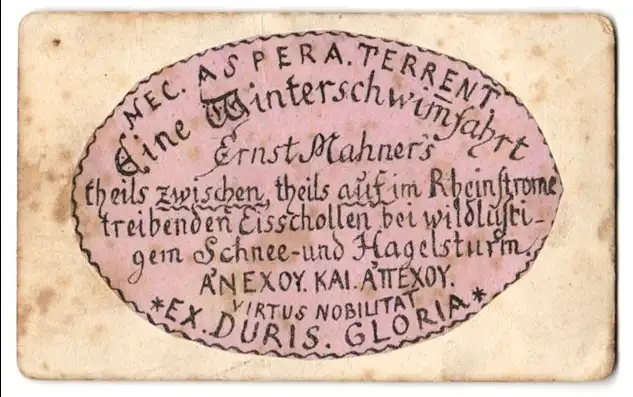 NEC. ASPERA. TERRENT
Eine Winterschwim̅fahrt
Ernst Mahner's
theils zwischen, theils auf im Rheinstrome
treibenden Eisschollen bei wildlusti-
gem Schnee-und Hagelsturm.
ἈNEXOY. KAI. ἈΠEXOY.
VIRTUS NOBILITAT
*EX. DURIS. GLORIA*